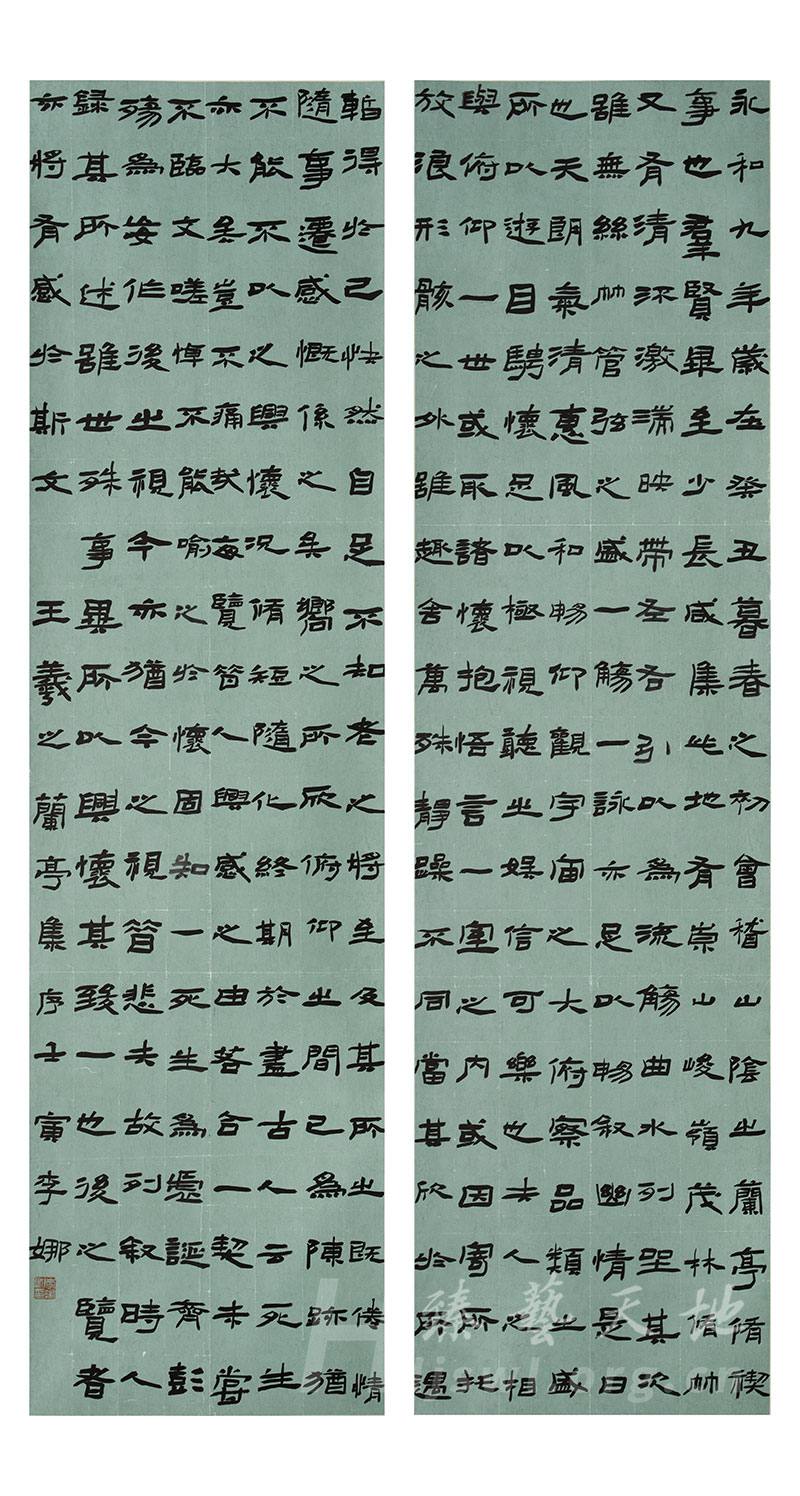 永和九年歲在癸丑暮春之初會稽山陰之蘭亭脩禊
事也羣賢畢至少長咸集此地有崇山峻嶺茂林脩竹
又有清流激湍映帶左右引以為流觴曲水列坐其次
雖無絲竹管弦之盛一觴一詠亦足以暢敘幽情是日
也天朗氣清惠風和暢仰觀宇宙之大俯察品類之盛
所以遊目騁懷足以極視聽之娛信可樂也夫人之相
與俯仰一世或取諸懷抱悟言一室之內或因寄所托
放浪形骸之外雖趣舍萬殊靜躁不同當其欣於所遇
暫得於己快然自足不知老之將至及其所之既倦情
隨事遷感慨係之矣嚮之所欣俯仰之間已為陳跡猶
不能不以之興懷況脩短隨化終期於盡古人云死生
亦大矣豈不痛哉每覽昔人興感之由若合一契未嘗
不臨文嗟悼不能喻之於懷固知一死生為虛誕齊彭
殤為妄作後之視今亦猶今之視昔悲夫故列敘時人
錄其所述雖世殊事異所以興懷其致一也後之覽者
亦將有感於斯文 王羲之蘭亭集序壬寅李娜
臻藝天地